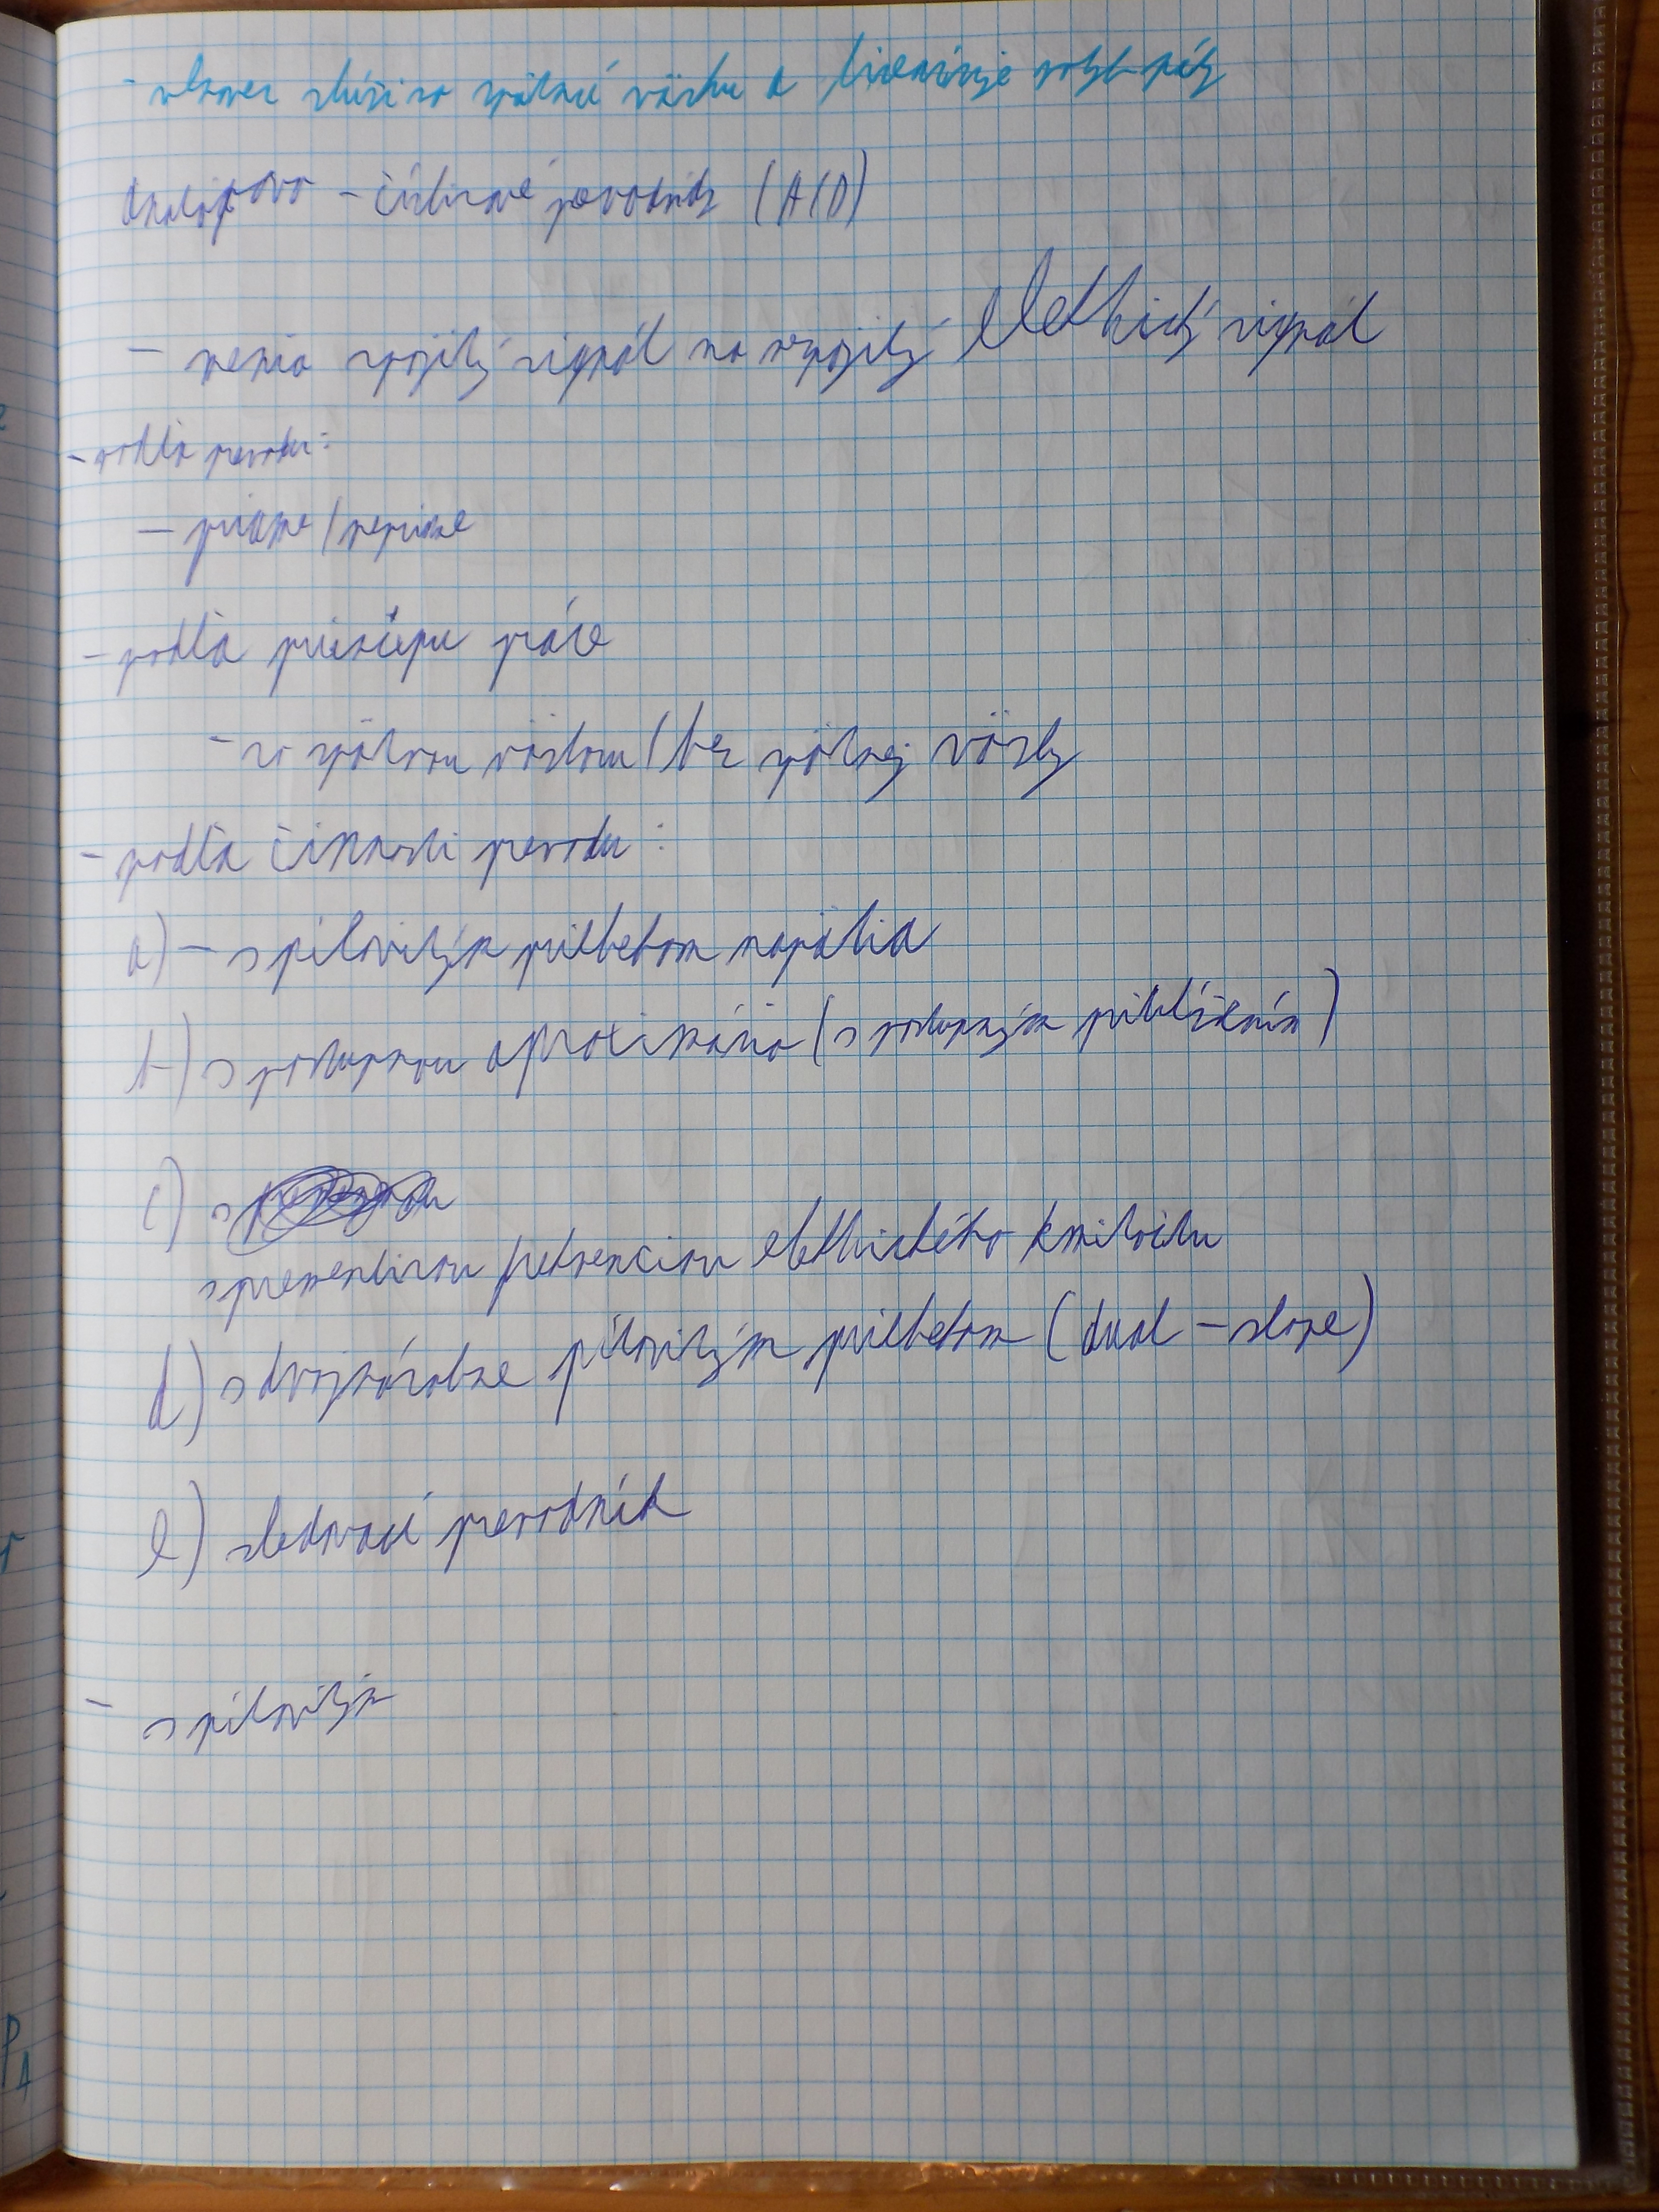 - slúži za spätnú väzbu a linearizuje
Analógovo - číslicové prevodníky (A/D)
- menia spojitý signál na nespojitý elektrický signál
- podľa prevodu:
- priame/nepriame
- podľa princípu práce
- so spätnou väzbou/bez spätnej väzby
- podľa činnosti prevodu:
a) - s pílovitým priebehom napätia
b) s postupnou aproximáciou (s postupným priblížením)
c) s
s premenlivou frekvenciou elektrického kmitočtu
d) s dvojnásobne pílovitým priebehom (dual - slope)
e) sledovací prevodník
- s pílovitým